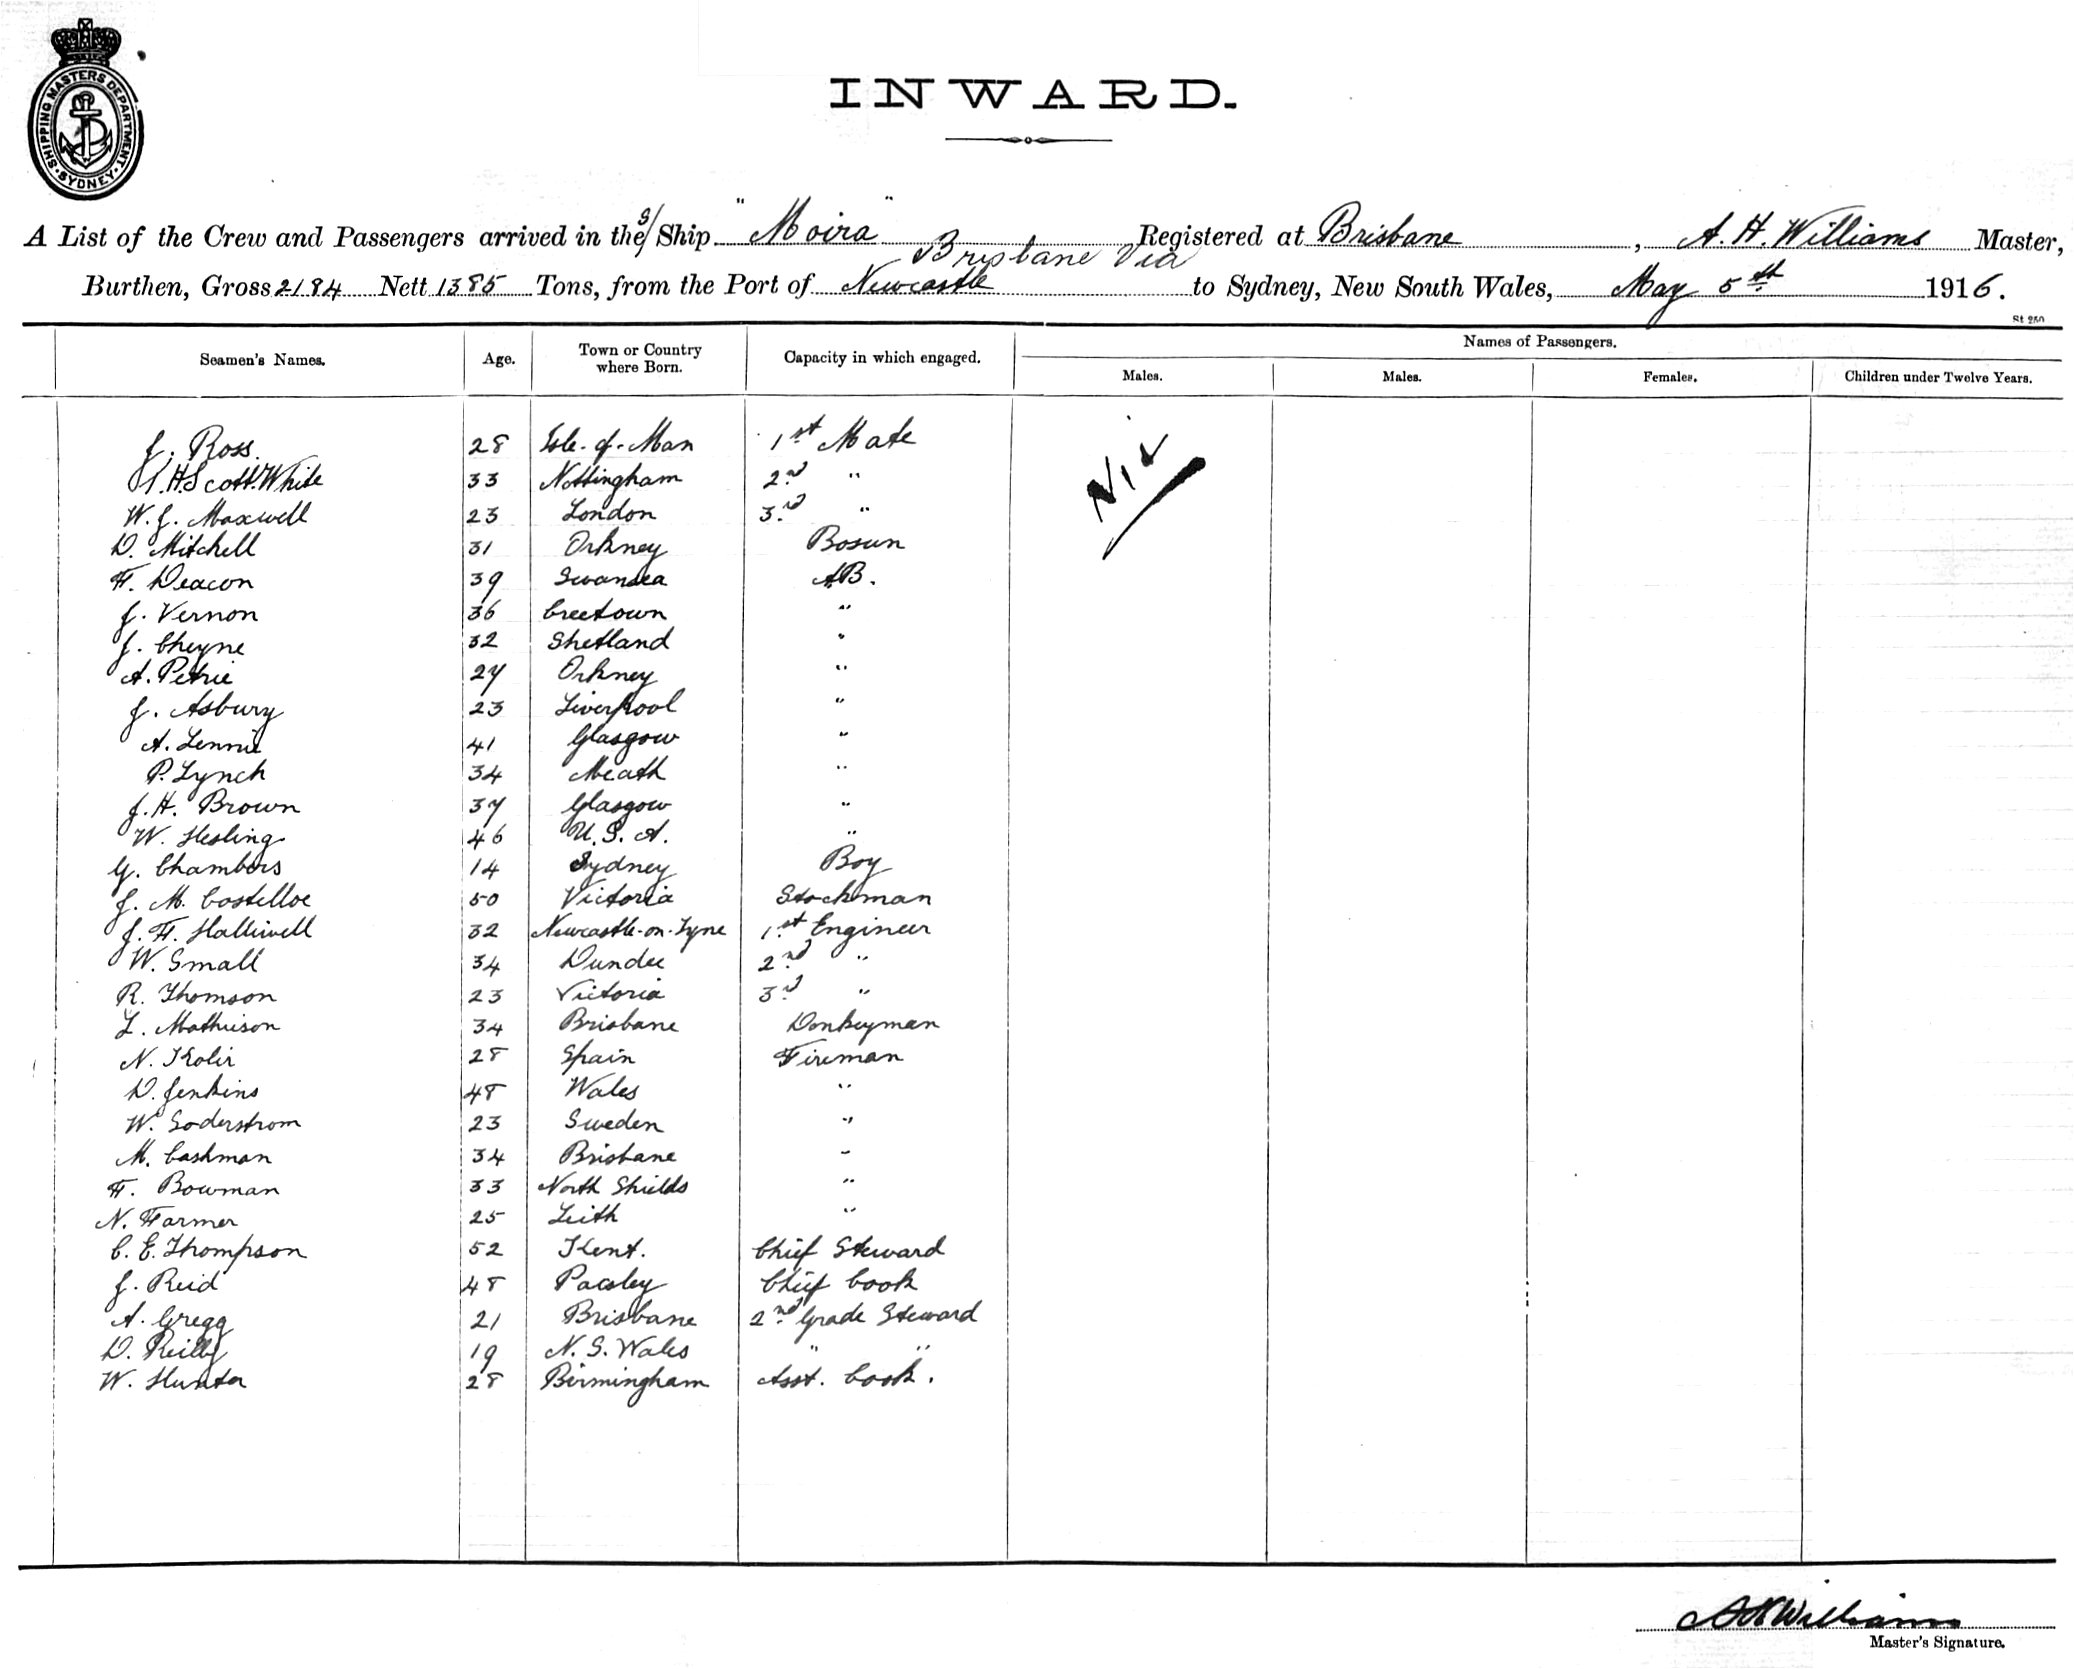 SHIPPING MASTERS DEPARTMENT
SYDNEY
INWARD.
A List of the Crew and Passengers arrived in the S/Ship "Moira" Registered at Brisbane, A. H. Williams Master,
Brisbane Via
Burthen, Gross 2184 Nett 1385 Tons, from the Port of Newcastle to Sydney, New South Wales, May 5th 1916.
St 250
Seamen's Names. Age. Town or Country where Born. Capacity in which engaged. Names of Passengers.
Males. Males. Females. Children under Twelve Years.
J. Ross. 28 Isle-of-Man 1st Mate
H. Scott. White 33 Nottingham 2nd "
W. J. Maxwell 23 London 3rd "
D. Mitchell 31 Orkney Bosun
F. Deacon 39 Swansea AB.
J. Vernon 36 Creetown "
J. Cheyne 32 Shetland "
A. Petrie 27 Orkney "
J. Asbury 23 Liverpool "
A. Lennie 41 Glasgow "
P. Lynch 34 Meath "
J. H. Brown 37 Glasgow "
W. Hesling 46 U. S. A. "
G. Chambers 14 Sydney Boy
J. M. Costelloe 50 Victoria Stockman
J. F. Halliwell 32 Newcastle-on-Tyne 1st Engineer
W. Small 34 Dundee 2nd "
R. Thomson 23 Victoria 3rd "
L. Mathieson 34 Brisbane Donkeyman
N. Kolir 28 Spain Fireman
D. Jenkins 48 Wales "
W. Soderstrom 23 Sweden "
M. Cashman 34 Brisbane "
F. Bowman 33 North Shields "
N. Farmer 25 Leith "
C. E. Thompson 52 Kent. Chief Steward
J. Reid 48 Pasley Chief Cook
A. Gregg 21 Brisbane 2nd Grade Steward
D. Reilly 19 N. S. Wales " "
W. Hunter 28 Birmingham Asst. Cook.
A H Williams
Master's Signature.